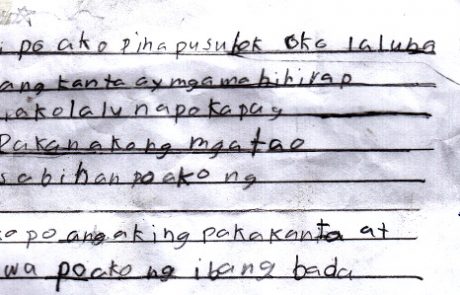 po ako pinapusubok oka laluna
ang kanta ay mga mahihirap
akolalu napokapag
Pakanakong mga tao
sabihan po ako ng
po ang aking pakakanta at
wa po ako ng ibang bada